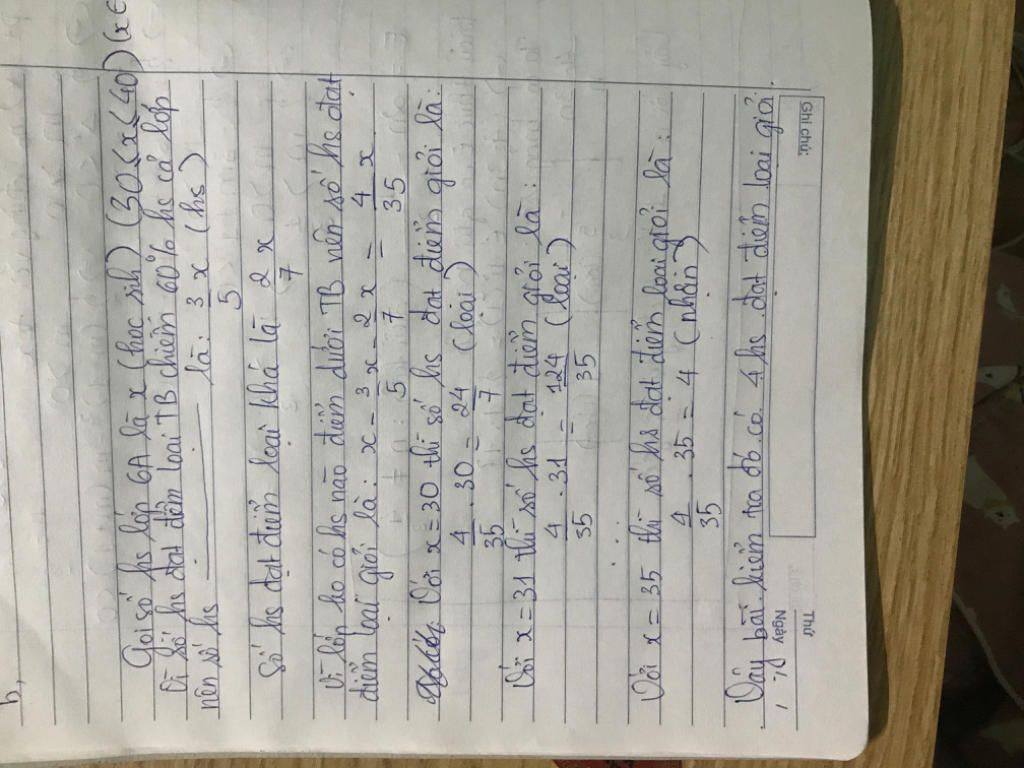 b,
Gọi số hs lớp 6A là x (học sih) (30<x<40) (x∈
Vì số hs đạt điểm loại TB chiếm 60% hs cả lớp
nên số hs là: 3/5 x (hs)
Số hs đạt điểm loại khá là 2/7 x
Vì lớp ko có hs nào điểm dưới TB nên số hs đạt
điểm loại giỏi là: x - 3/5 x - 2/7 x = 4/35 x
Với x = 30 thì số hs đạt điểm giỏi là:
4/35 . 30 = 24/7 (loại)
Với x = 31 thì số hs đạt điểm giỏi là:
4/35 . 31 = 124/35 (loại)
Với x = 35 thì số hs đạt điểm loại giỏi là:
4/35 . 35 = 4 (nhận)
Vậy bài kiểm tra đó có 4 hs đạt điểm loại giỏi.
Thứ
Ngày
Ghi chú: